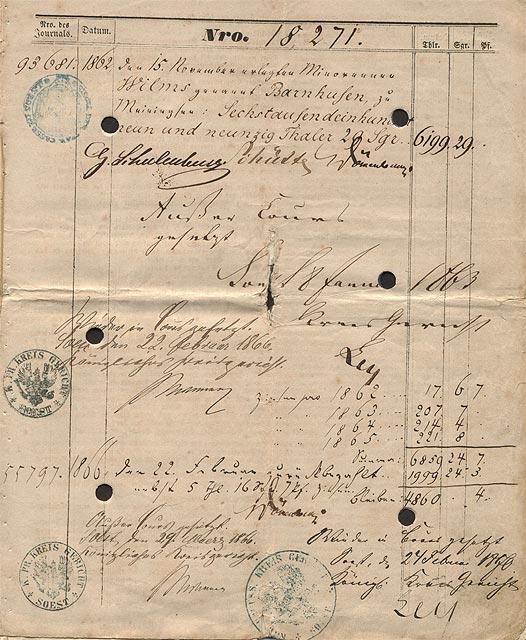 Nro. des Journals. Datum. Nro. 18271. Thlr. Sgr. Pf.
93681. 1862 den 15. November erlegten Minorennen
Wilms genannt Barnhusen, zu
Meiningsen: Sechstausendeinhundert
neun und neunzig Thaler 29 Sgr. 6199 29.
Gf Schulenburg Schütte
Außer Cours
gesetzt
Soest 8 Januar 1863
Kreis Gericht
Wieder in Cours gesetzt.
Soest, den 22. Februar 1866.
Königliches Kreisgericht.
Ley
Zinsen pro 1862 17. 6 7.
1863 207 7
1864 214 4
1865 221 8
Summa 6859 24. 7.
55797. 1866 den 22. Februar zurückbezahlt 1999 24. 3
nebst 5 Thl. 16 Zinsen
bleiben 4860 4.
Außer Cours gesetzt.
Soest, den 29. März 1866.
Königliches Kreisgericht.
Wieder in Cours gesetzt
Soest, d. 24 Febru 1866
Königl. Kreis Gericht
Ley
K. PR. KREIS GERICHT
SOEST
K. PR. KREIS GERICHT
SOEST
KREIS GERICHT